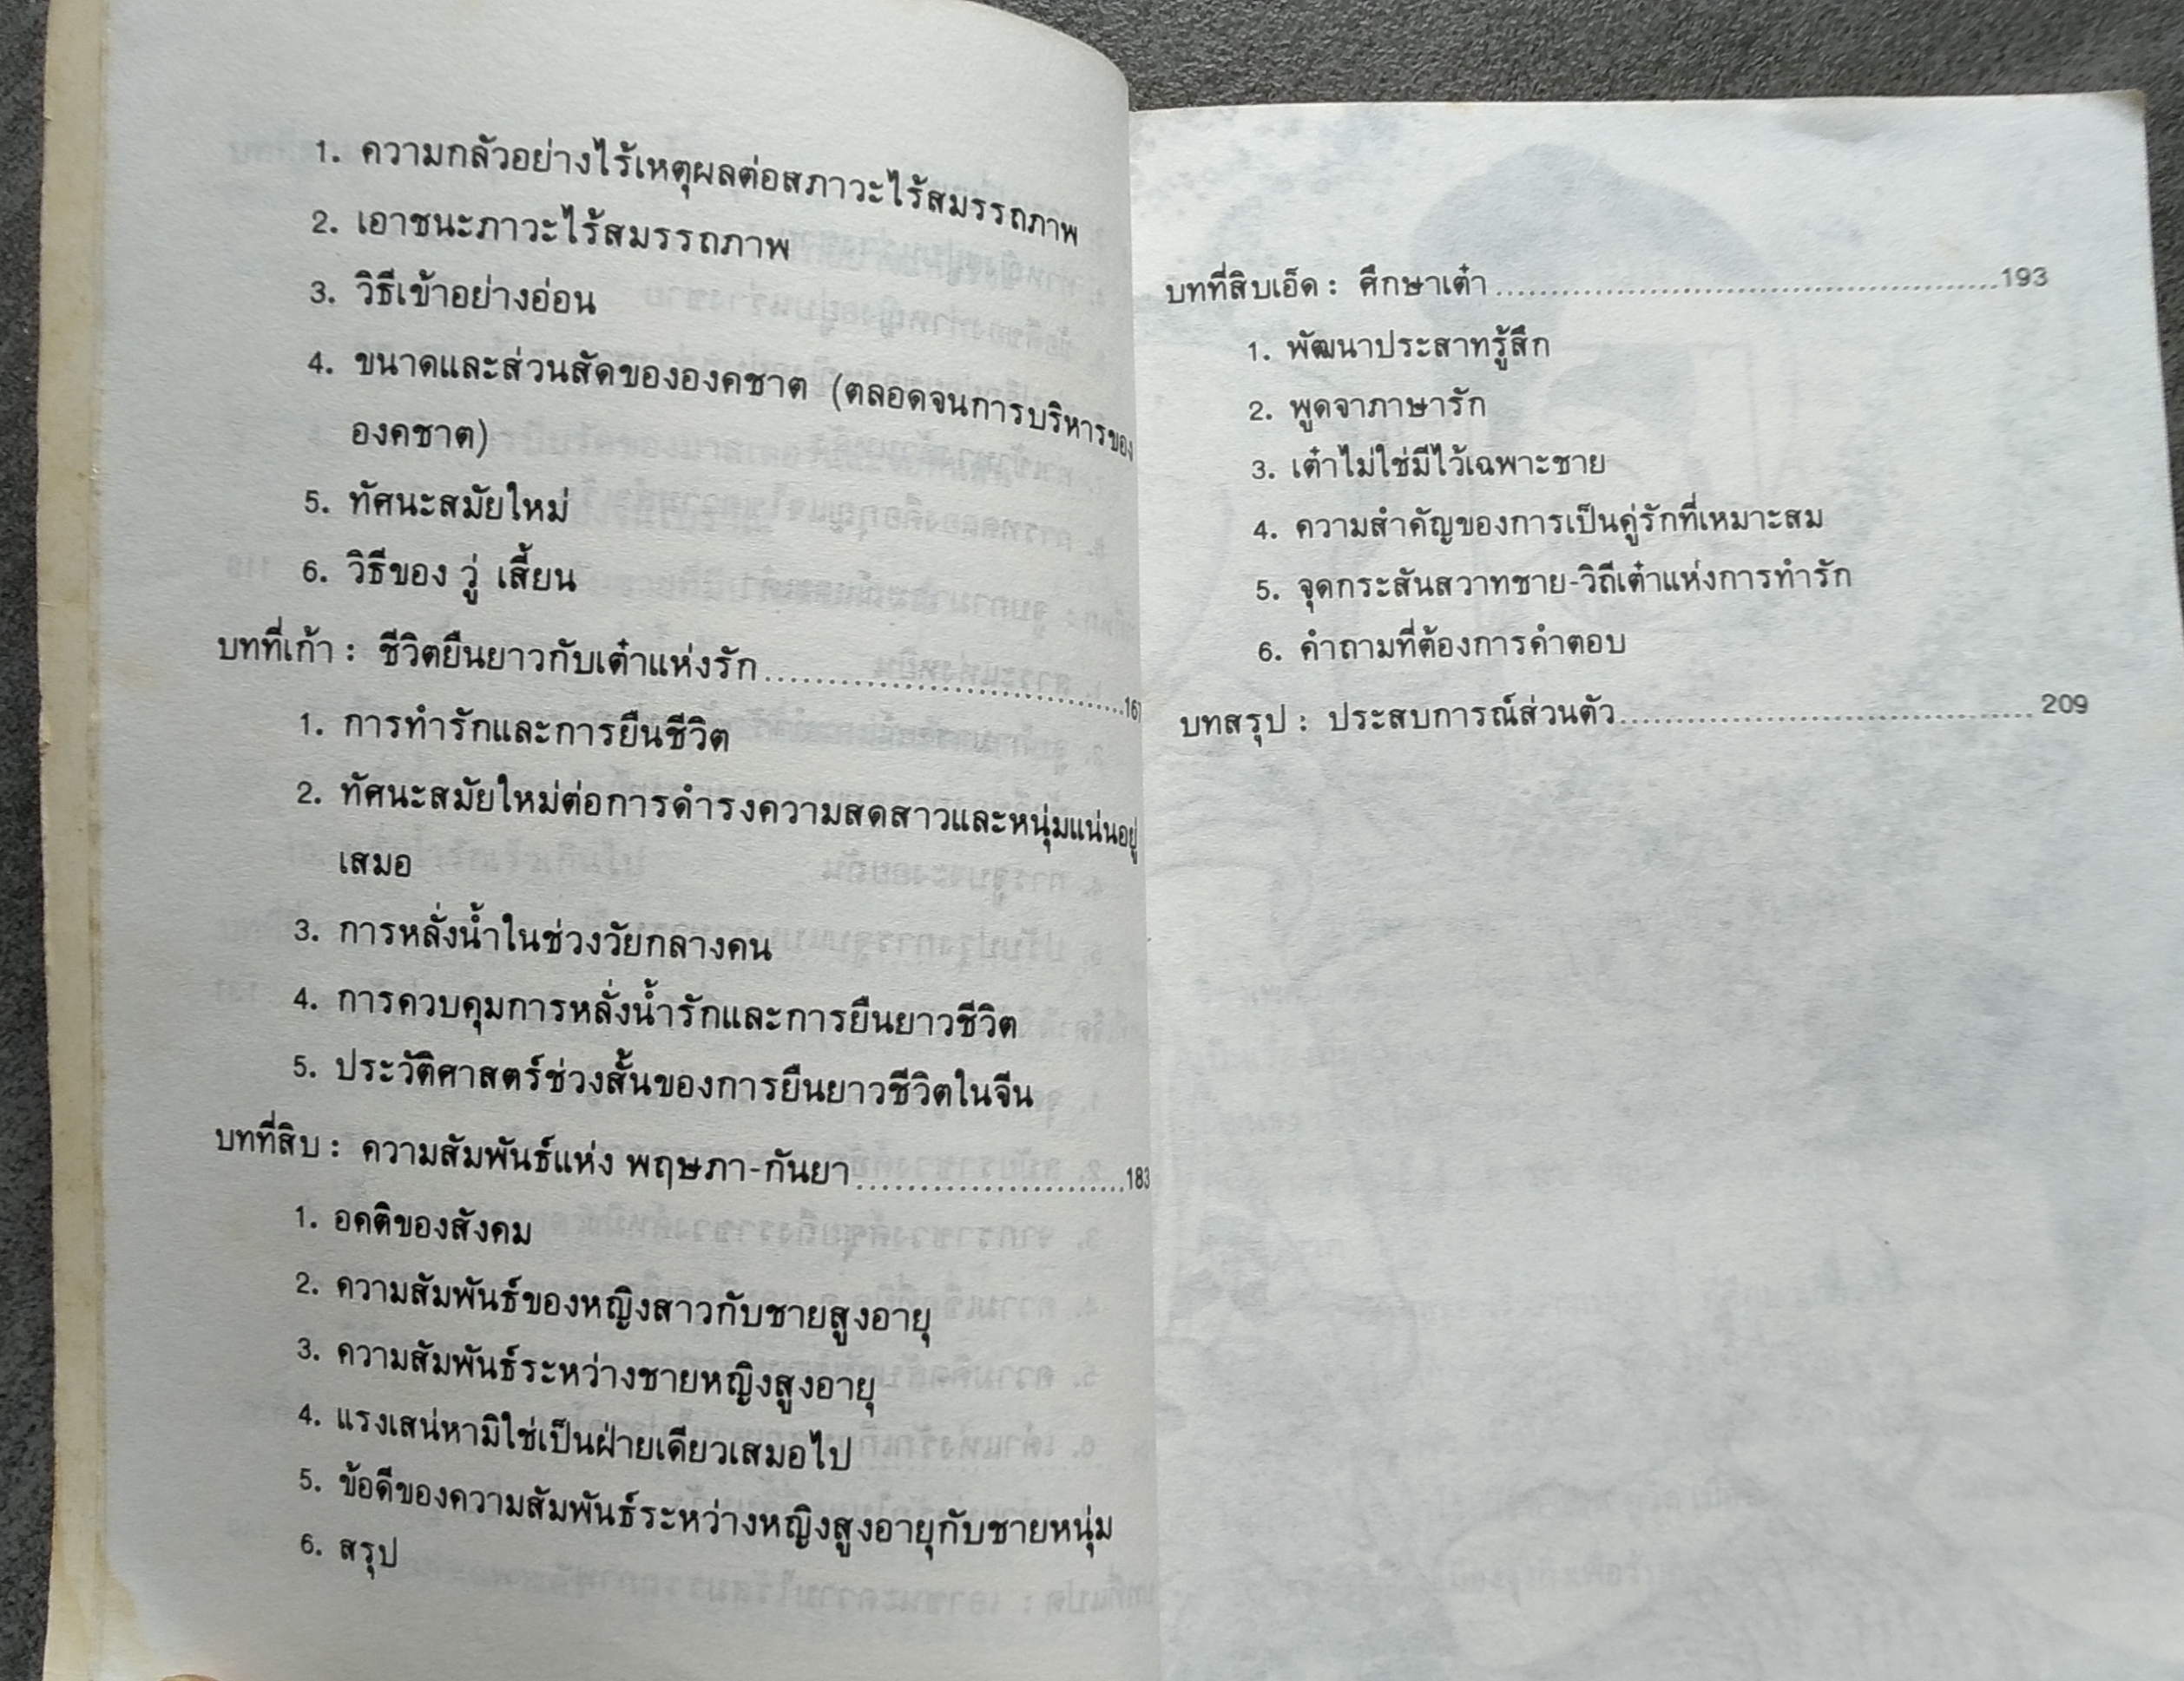 1. ความกลัวอย่างไร้เหตุผลต่อสภาวะไร้สมรรถภาพ
2. เอาชนะภาวะไร้สมรรถภาพ
3. วิธีเข้าอย่างอ่อน
4. ขนาดและส่วนสัดขององคชาต (ตลอดจนการบริหารของ
องคชาต)
5. ทัศนะสมัยใหม่
6. วิธีของ วู่ เสี้ยน
บทที่เก้า : ชีวิตยืนยาวกับเต๋าแห่งรัก
1. การทำรักและการยืนชีวิต
2. ทัศนะสมัยใหม่ต่อการดำรงความสดสาวและหนุ่มแน่นอยู่
เสมอ
3. การหลั่งน้ำในช่วงวัยกลางคน
4. การควบคุมการหลั่งน้ำรักและการยืนยาวชีวิต
5. ประวัติศาสตร์ช่วงสั้นของการยืนยาวชีวิตในจีน
บทที่สิบ : ความสัมพันธ์แห่ง พฤษภา-กันยา........................183
1. อคติของสังคม
2. ความสัมพันธ์ของหญิงสาวกับชายสูงอายุ
3. ความสัมพันธ์ระหว่างชายหญิงสูงอายุ
4. แรงเสน่หามิใช่เป็นฝ่ายเดียวเสมอไป
5. ข้อดีของความสัมพันธ์ระหว่างหญิงสูงอายุกับชายหนุ่ม
6. สรุป
บทที่สิบเอ็ด : ศึกษาเต๋า..............................................193
1. พัฒนาประสาทรู้สึก
2. พูดจาภาษารัก
3. เต๋าไม่ใช่มีไว้เฉพาะชาย
4. ความสำคัญของการเป็นคู่รักที่เหมาะสม
5. จุดกระสันสวาทชาย-วิถีเต๋าแห่งการทำรัก
6. คำถามที่ต้องการคำตอบ
บทสรุป : ประสบการณ์ส่วนตัว......................................209